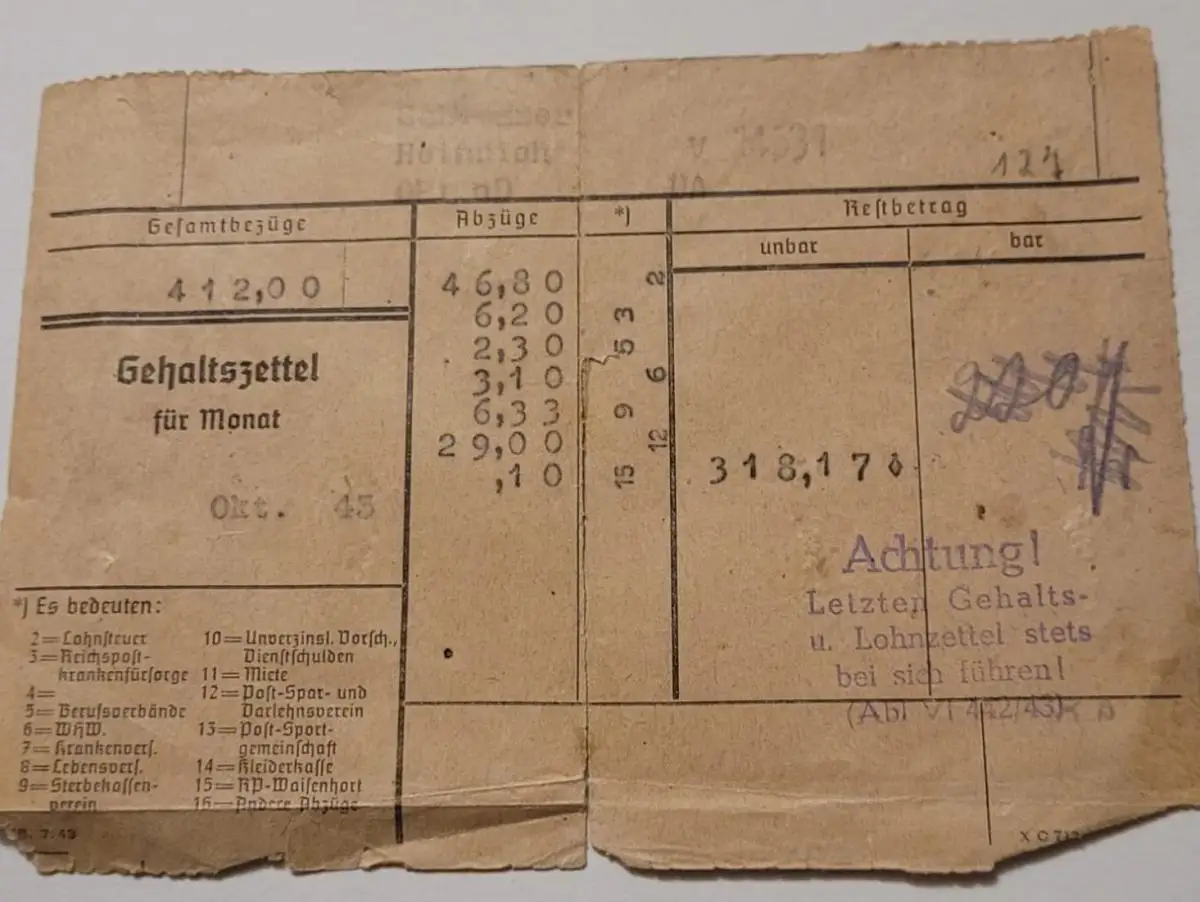 Heinrich
127
Gesamtbezüge Abzüge *) Restbetrag
unbar bar
412,00
46,80 2
6,20 3
2,30 5
3,10 6
6,33 9
29,00 12
,10 15
318,17
Gehaltszettel
für Monat
Okt. 43
Achtung!
Letzten Gehalts-
u. Lohnzettel stets
bei sich führen!
(Abl VI 442/43)
*) Es bedeuten:
2=Lohnsteuer
3=Reichspost-
krankenfürsorge
4=
5=Berufsverbände
6=WHW.
7=Krankenvers.
8=Lebensvers.
9=Sterbekassen-
verein
10=Unverzinsl. Vorsch.,
Dienstschulden
11=Miete
12=Post-Spar- und
Darlehnsverein
13=Post-Sport-
gemeinschaft
14=Kleiderkasse
15=RP-Waisenhort
16=Andere Abzüge
7.43
X C